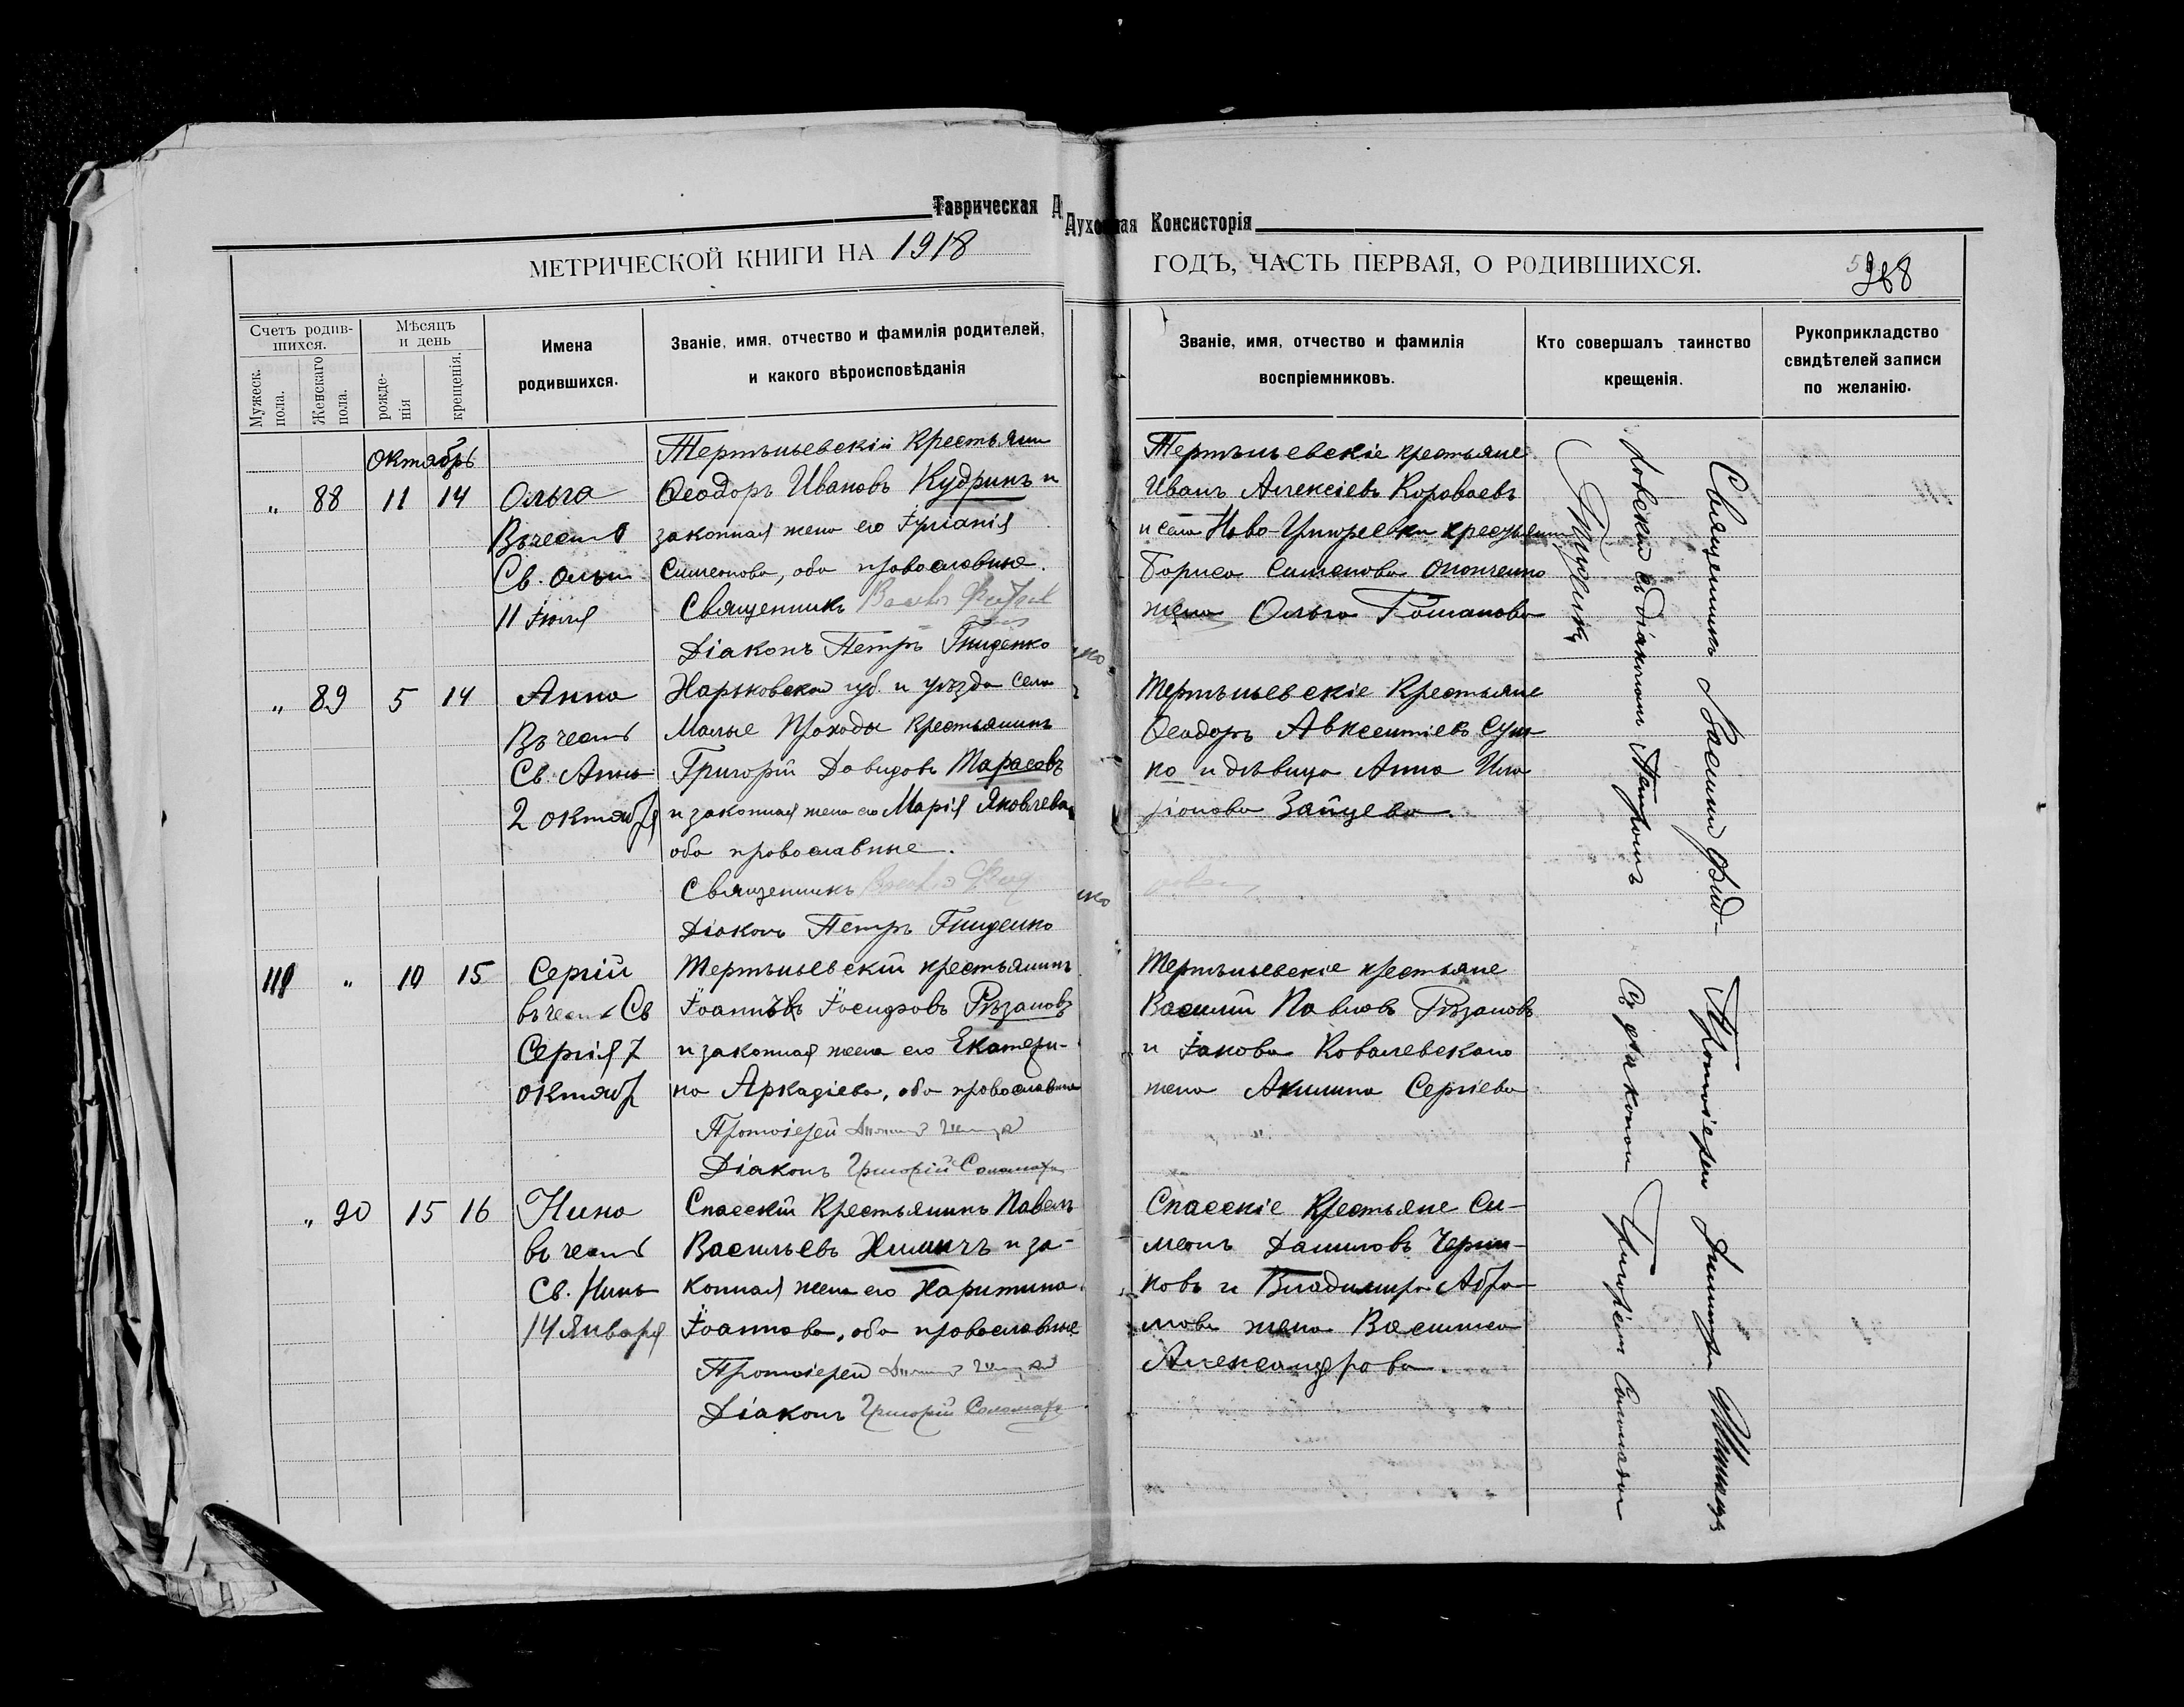 Таврическая Духовная Консисторія
МЕТРИЧЕСКОЙ КНИГИ НА 1918 ГОДЪ, ЧАСТЬ ПЕРВАЯ, О РОДИВШИХСЯ.
Счетъ родив-
шихся.
Мужеск.
пола.
Женскаго
пола.
Мѣсяцъ
и день
рожде-
нія
крещенія.
Имена
родившихся.
Званіе, имя, отчество и фамилія родителей,
и какого вѣроисповѣданія
Званіе, имя, отчество и фамилія
воспріемниковъ.
Кто совершалъ таинство
крещенія.
Рукоприкладство
свидѣтелей записи
по желанію.
Октябрь
„ 88 11 14
Ольга
Въ честь
Св. Ольги
11 Іюля
Тертѣньевскій Крестьянин
Ѳеодоръ Ивановъ Кудринъ и
законная жена его Іуліанія
Симеонова, оба православные.
Священникъ
Діаконъ Петръ Гниденко
Тертѣньевскіе крестьяне
Иванъ Алексіевъ Короваевъ
и села Ново-Григорьевки крестьянина
Бориса Симеонова
жена Ольга Романова
„ 89 5 14
Анна
Въ честь
Св. Анны
2 октября
Харьковской губ. и уѣзда села
Малые Проходы Крестьянинъ
Григорій Давидовъ Тарасовъ
и законная жена его Марія Яковлева,
оба православные.
Священникъ
Діаконъ Петръ Гниденко
Тертѣньевскіе Крестьяне
Ѳеодоръ Авксентіевъ Суш-
ко и дѣвица Анна Ила-
ріонова Зайцева.
Священникъ Василій Фид-
ловскій съ діакономъ Петромъ
111 „ 10 15
Сергій
въ честь Св
Сергія 7
октября
Тертѣньевскій крестьянинъ
Іоаннъ Іосифовъ Рѣзановъ
и законная жена его Екатери-
на Аркадіева, оба православные
Протоіерей
Діаконъ Григорій Соломаха
Тертѣньевскіе крестьяне
Василій Павловъ Рѣзановъ
и Іакова Ковалевскаго
жена Акилина Сергіева
„ 90 15 16
Нина
въ честь
Св. Нины
14 Января
Спасскій Крестьянинъ Павелъ
Васильевъ и за-
конная жена его Харитина
Іоаннова, оба православные
Протоіерей
Діаконъ Григорій Соломаха
Спасскіе Крестьяне Си-
меонъ Даниловъ Черни-
ковъ и Владимира Абра-
мова жена Василиса
Александрова.
Протоіерей Димитрій
Съ діакономъ Григоріемъ Соломахою